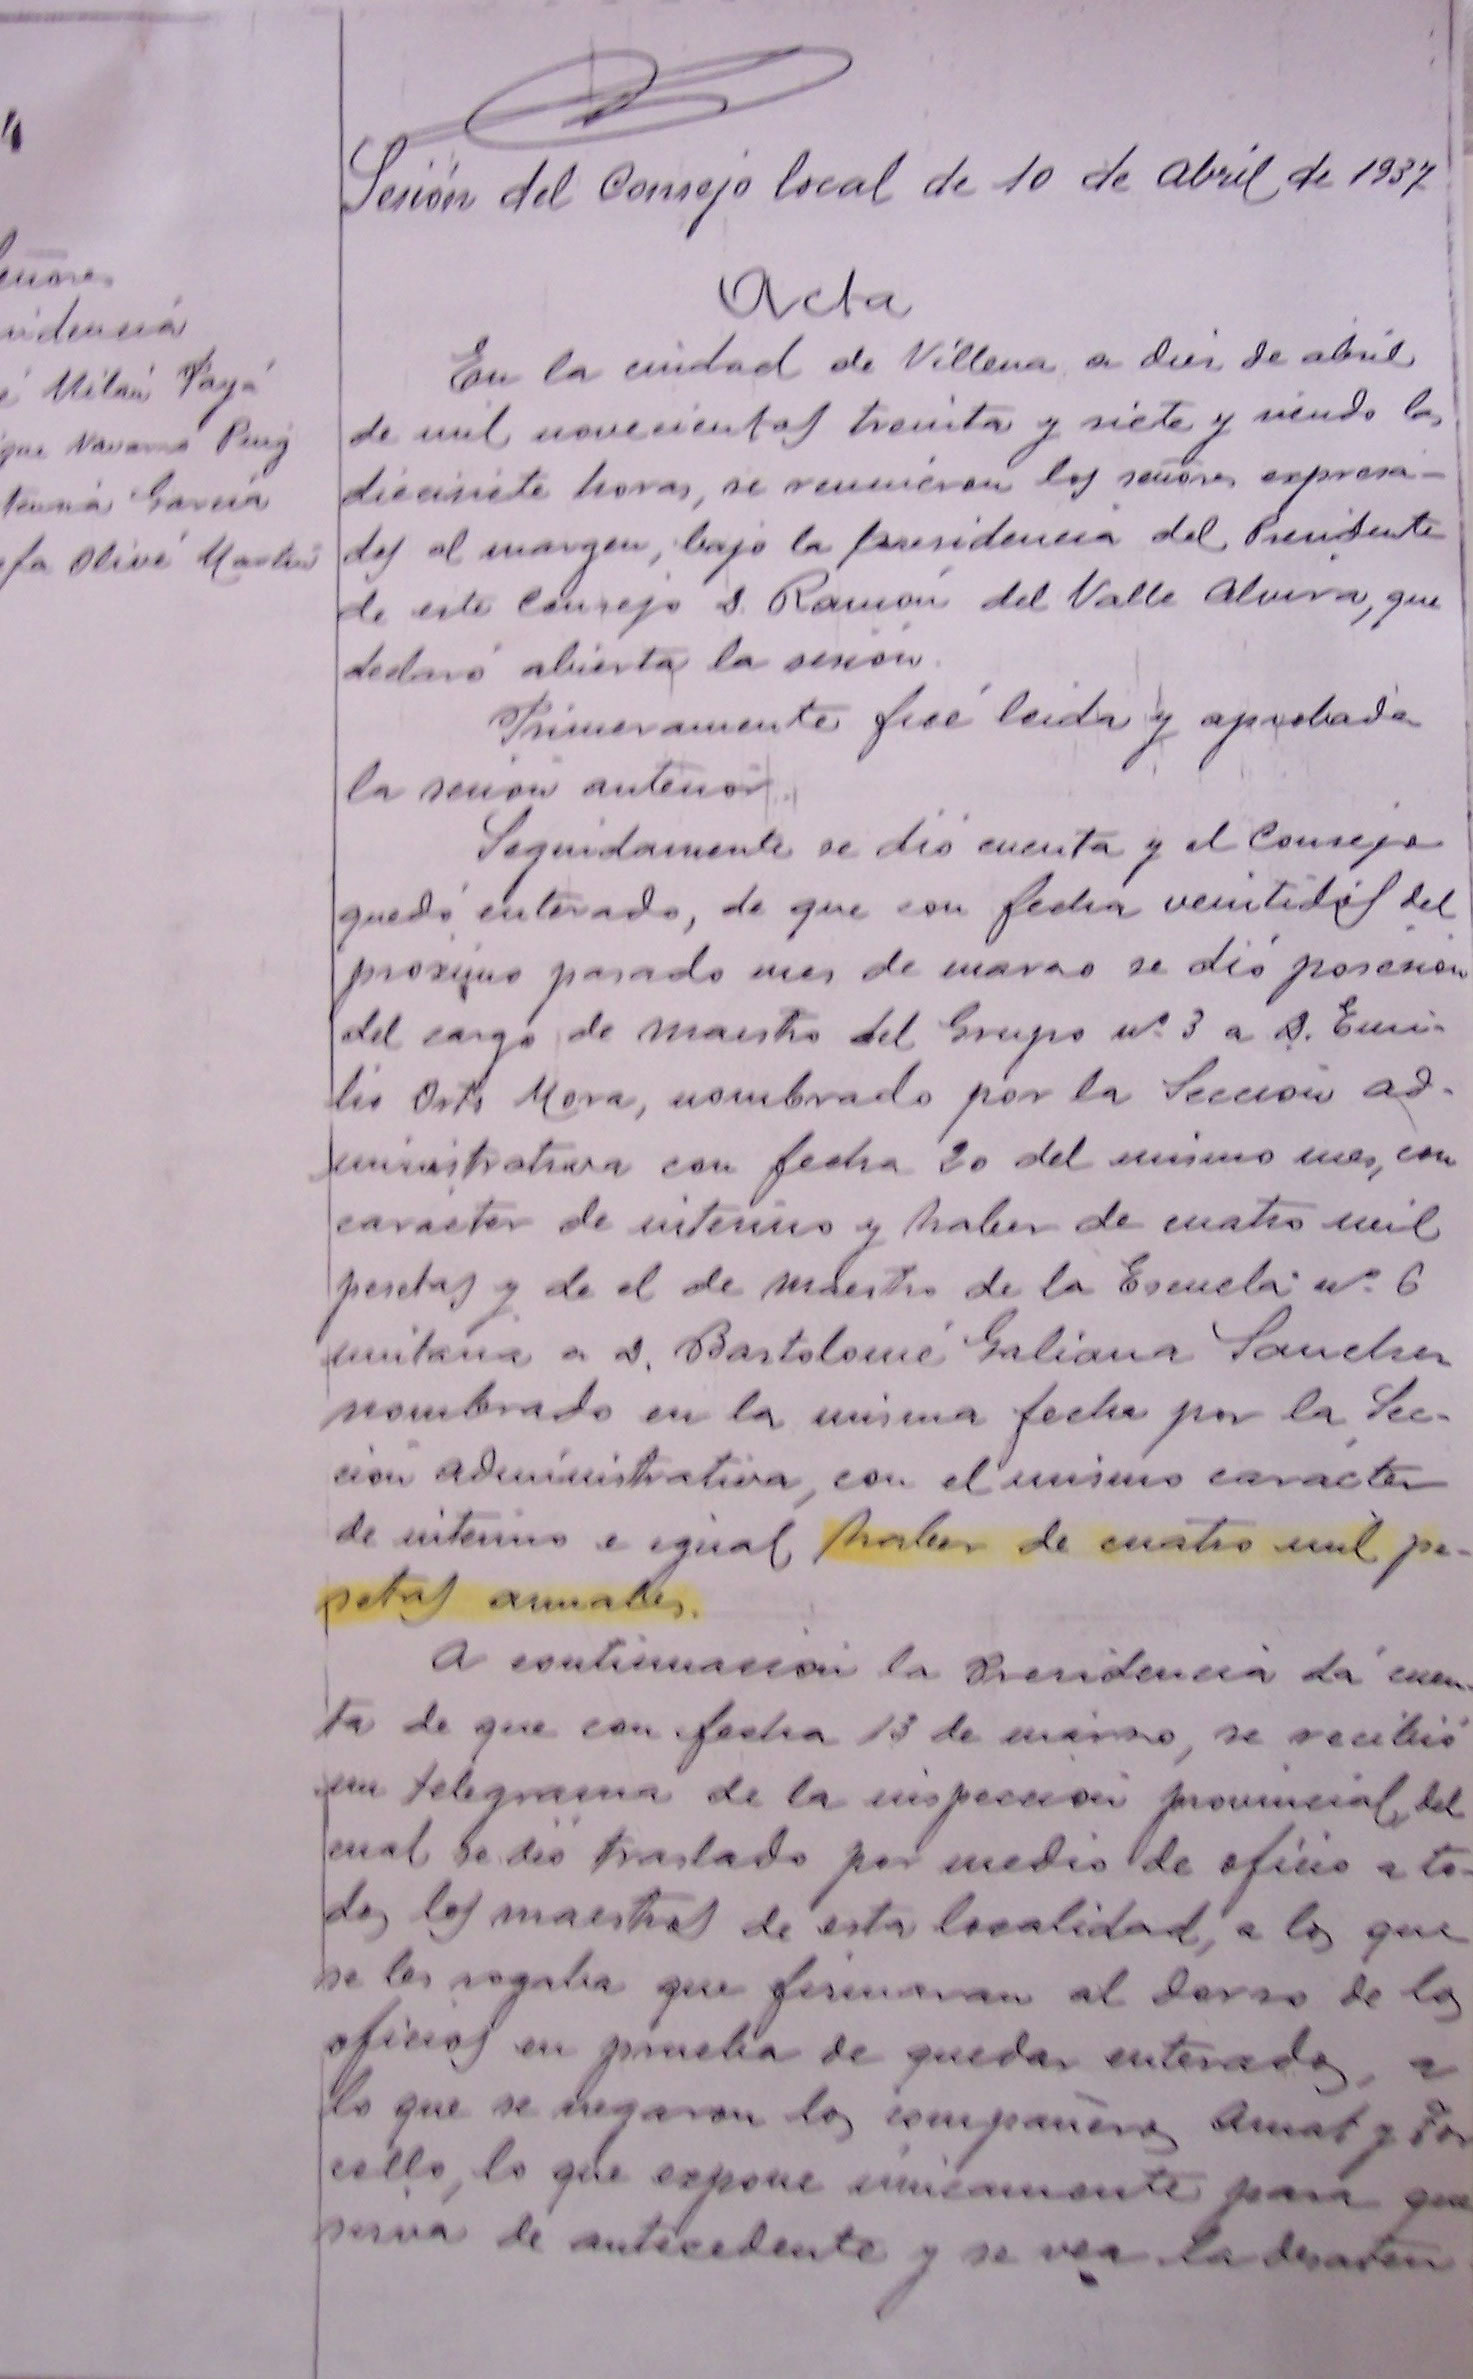 Sesión del Consejo local de 10 de Abril de 1937
Acta
eñores
sidencia
é Milán Payá
que Navarro Puig
García
fa Olivé Martín
En la ciudad de Villena a diez de abril
de mil novecientos treinta y siete y siendo las
diecisiete horas, se reunieron los señores expresa-
dos al margen, bajo la presidencia del Presidente
de este Consejo D. Ramón del Valle Alvira, que
declaró abierta la sesión.
Primeramente fué leida y aprobada
la sesión anterior.
Seguidamente se dió cuenta y el Consejo
quedó enterado, de que con fecha veintidós del
próximo pasado mes de marzo se dió posesión
del cargo de Maestro del Grupo nº 3 a D. Emi-
lio Orts Mora, nombrado por la Sección ad-
ministrativa con fecha 20 del mismo mes, con
caracter de interino y haber de cuatro mil
pesetas y de el de Maestro de la Escuela nº 6
unitaria a D. Bartolomé Galiana Sanchez
nombrado en la misma fecha por la Sec-
ción administrativa, con el mismo caracter
de interino e igual haber de cuatro mil pe-
setas anuales.
A continuación la Presidencia dá cuen-
ta de que con fecha 13 de marzo, se recibió
un telegrama de la inspección provincial, del
cual se dió traslado por medio de oficio a to-
dos los maestros de esta localidad, a los que
se les rogaba que firmaran al dorso de los
oficios en prueba de quedar enterados, a
lo que se negaron los compañeros Amat y Tor
cello, lo que expone únicamente para que
sirva de antecedente y se vea la desaten